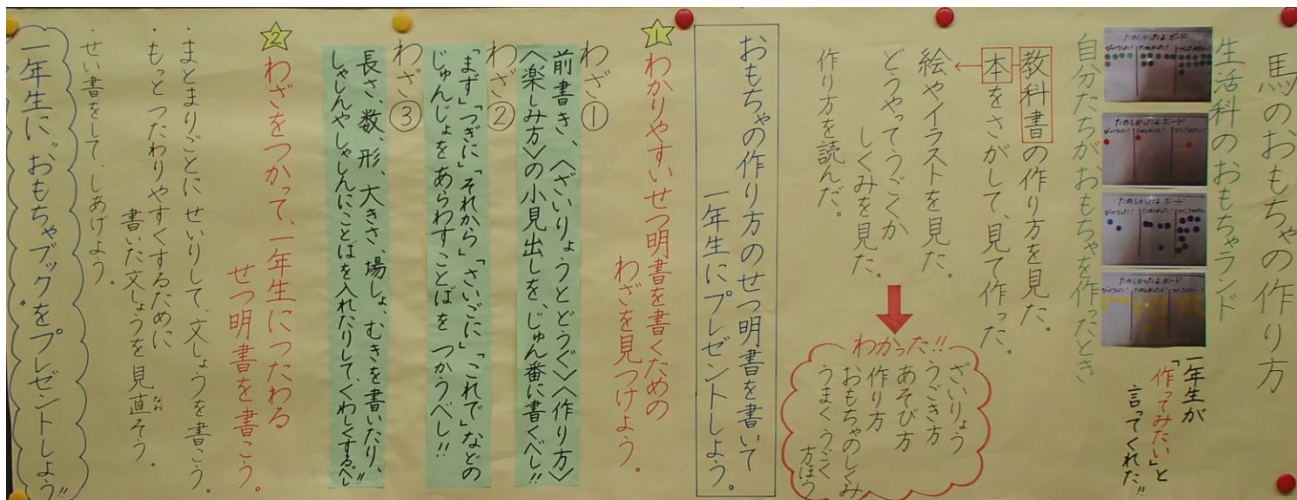 馬のおもちゃの作り方
生活科のおもちゃランド
たのしかったよボード
たのしかったよボード
たのしかったよ ボード
たのしかったよ ボード
一年生が
「作ってみたい」と
言ってくれた!!
自分たちがおもちゃを作ったとき
教科書の作り方を見た。
本をさがして、見て作った。
絵やイラストを見た。
どうやってうごくか
しくみを見た。
作り方を読んだ。
わかった!!
ざいりょう
うごき方
あそび方
作り方
おもちゃのしくみ
うまくうごく
方ほう
おもちゃの作り方のせつ明書を書いて
一年生にプレゼントしよう。
1
わかりやすいせつ明書を書くための
わざを見つけよう。
わざ①
前書き、〈ざいりょうとどうぐ〉〈作り方〉
〈楽しみ方〉の小見出しを、じゅん番に書くべし!!
わざ②
「まず」「つぎに」「それから」「さいごに」「これで」などの
じゅんじょをあらわすことばを つかうべし!!
わざ③
長さ、数、形、大きさ、場しょ、むきを書いたり、
しゃしんやしゃしんにことばを入れたりして、くわしくするべし
2
わざをつかって、一年生につたわる
せつ明書を書こう。
・まとまりごとに せいりして、文しょうを書こう。
・もっと つたわりやすくするために
書いた文しょうを見直そう。
なお
・せい書をして、しあげよう。
一年生に“おもちゃブック”をプレゼントしよう!!